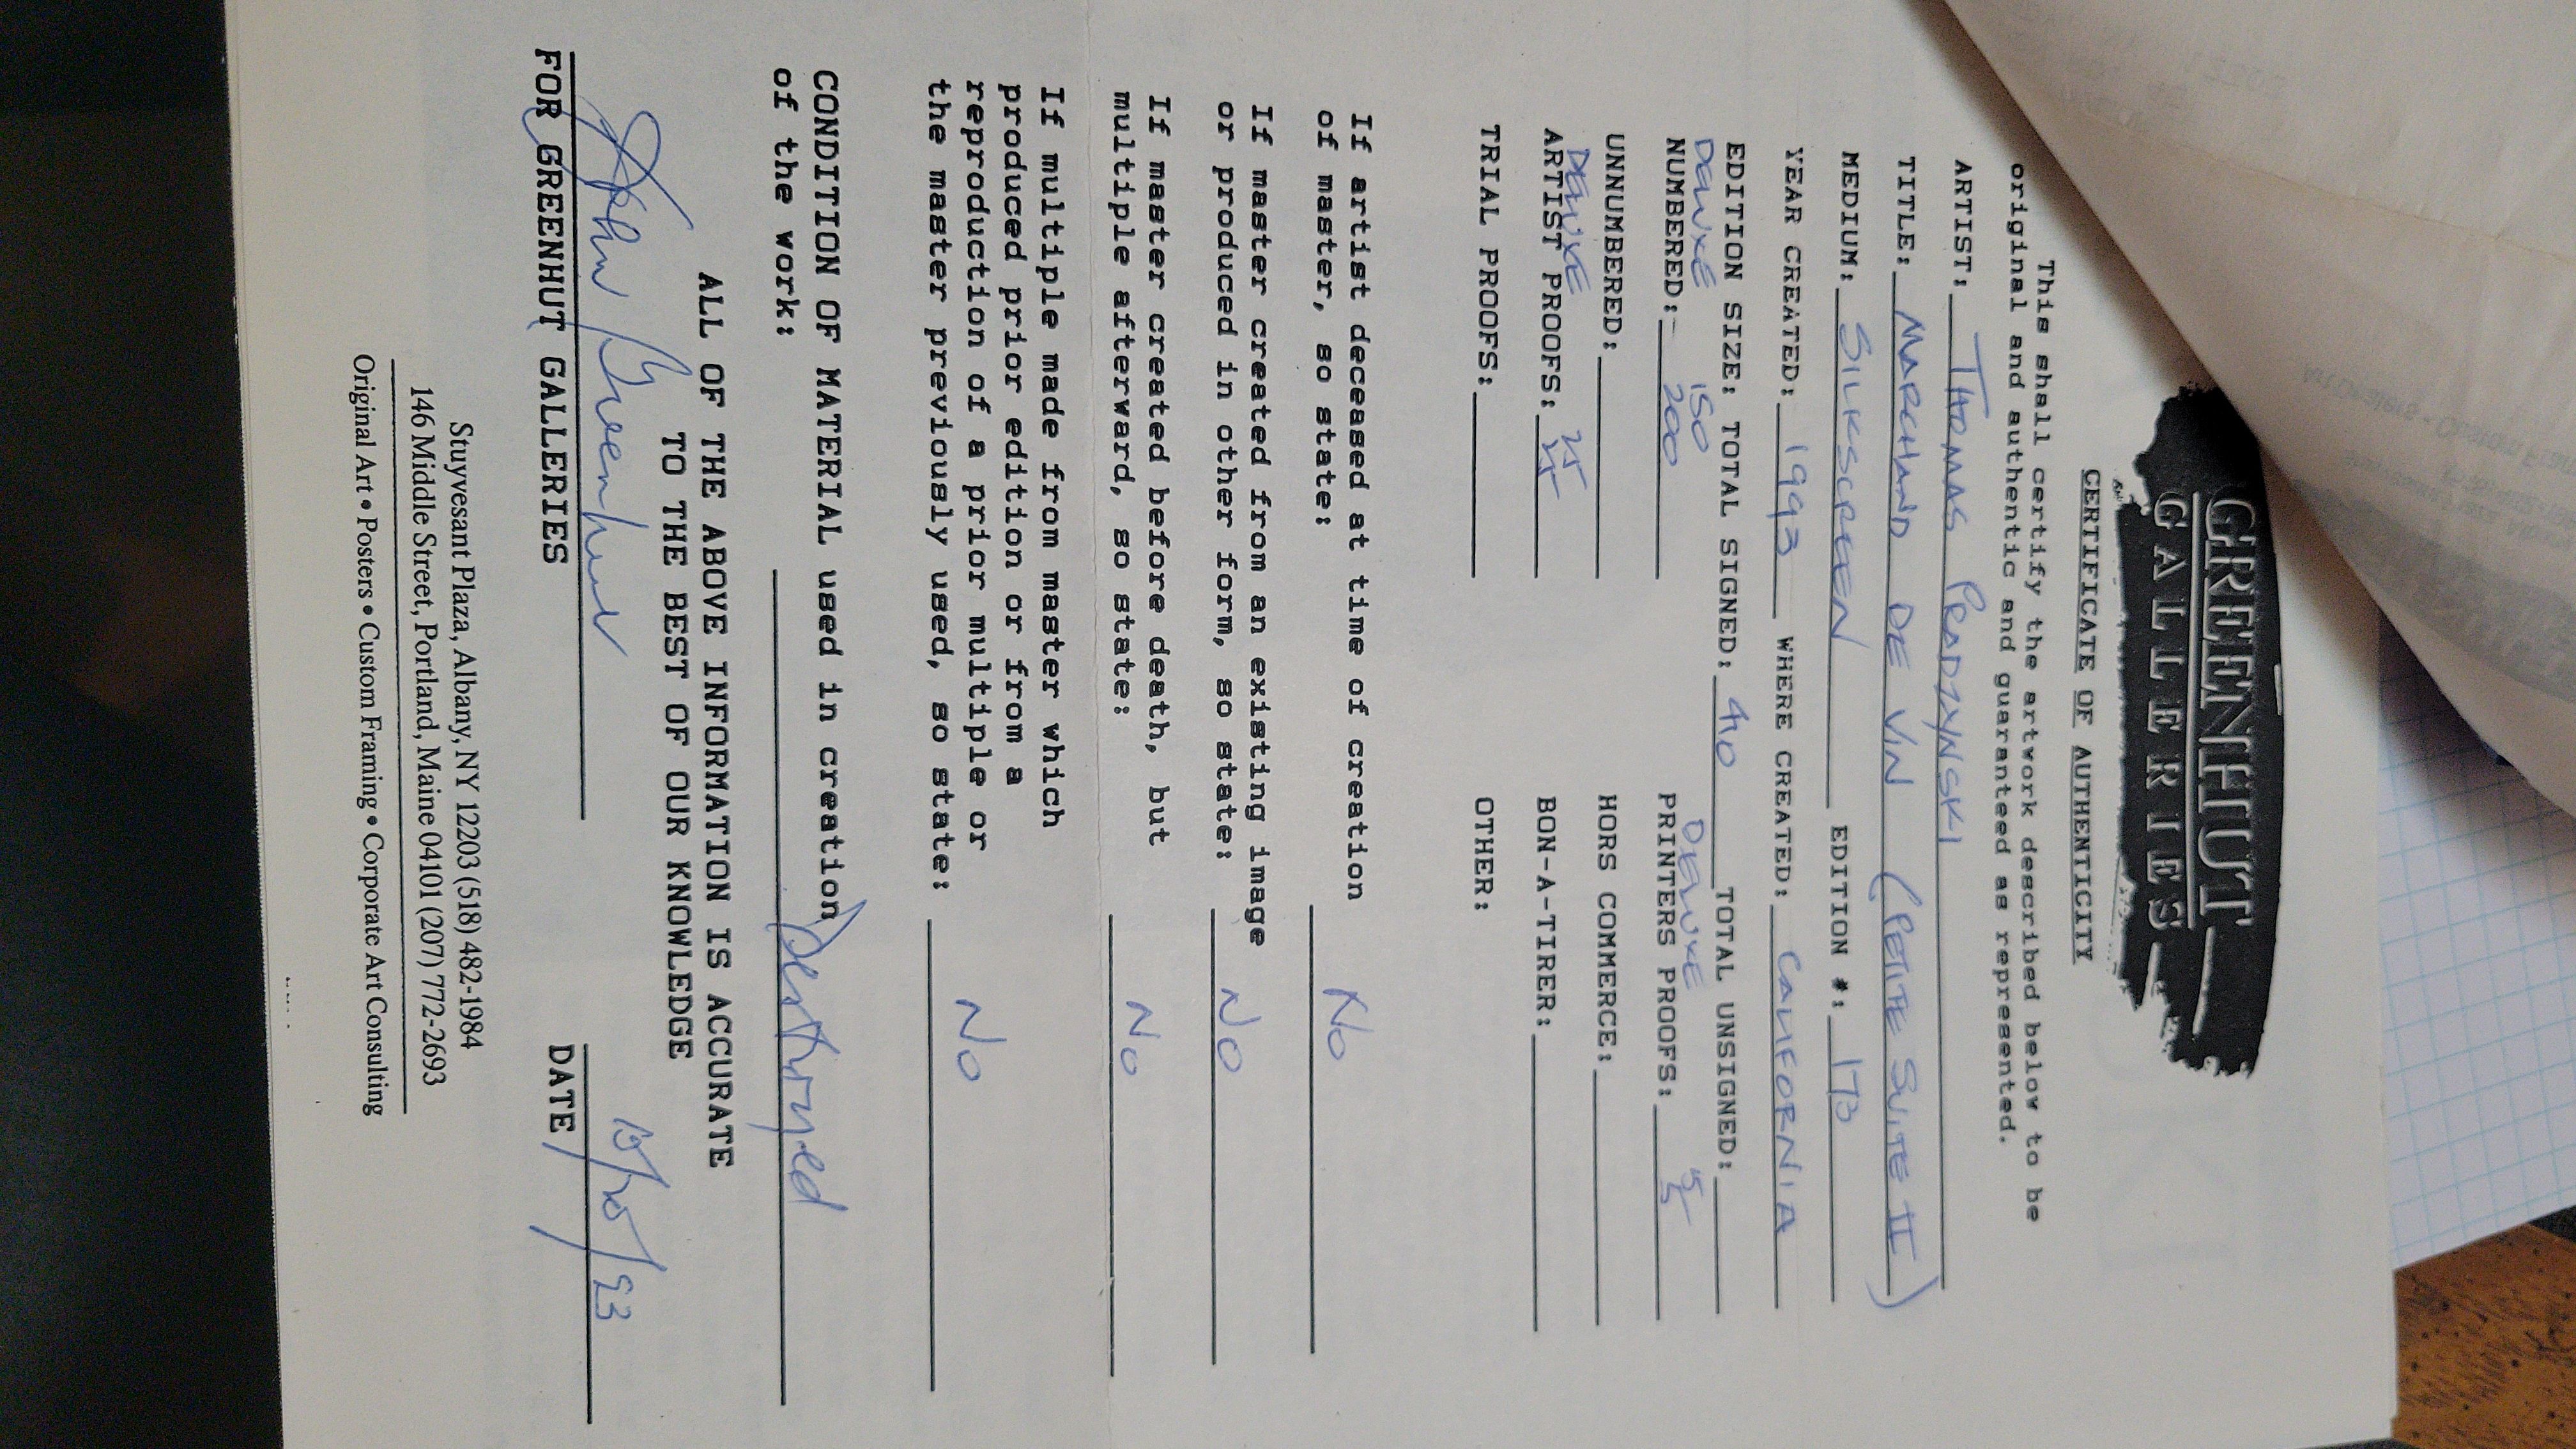 GREENHUT
GALLERIES
CERTIFICATE OF AUTHENTICITY
This shall certify the artwork described below to be
original and authentic and guaranteed as represented.
ARTIST: THOMAS PRADZYNSKI
TITLE: MARCHAND DE VIN (PETITE SUITE II)
MEDIUM: SILKSCREEN EDITION #: 173
YEAR CREATED: 1993 WHERE CREATED: CALIFORNIA
EDITION SIZE: TOTAL SIGNED: 410 TOTAL UNSIGNED:
DELUXE 150 DELUXE 5
NUMBERED: 200 PRINTERS PROOFS: 5
UNNUMBERED: HORS COMMERCE:
DELUXE 25
ARTIST PROOFS: 25 BON-A-TIRER:
TRIAL PROOFS: OTHER:
If artist deceased at time of creation
of master, so state: No
If master created from an existing image
or produced in other form, so state: NO
If master created before death, but
multiple afterward, so state: No
If multiple made from master which
produced prior edition or from a
reproduction of a prior multiple or
the master previously used, so state: No
CONDITION OF MATERIAL used in creation
of the work: Destroyed
ALL OF THE ABOVE INFORMATION IS ACCURATE
TO THE BEST OF OUR KNOWLEDGE
John Greenhut
FOR GREENHUT GALLERIES DATE
Stuyvesant Plaza, Albany, NY 12203 (518) 482-1984
146 Middle Street, Portland, Maine 04101 (207) 772-2693
Original Art • Posters • Custom Framing • Corporate Art Consulting